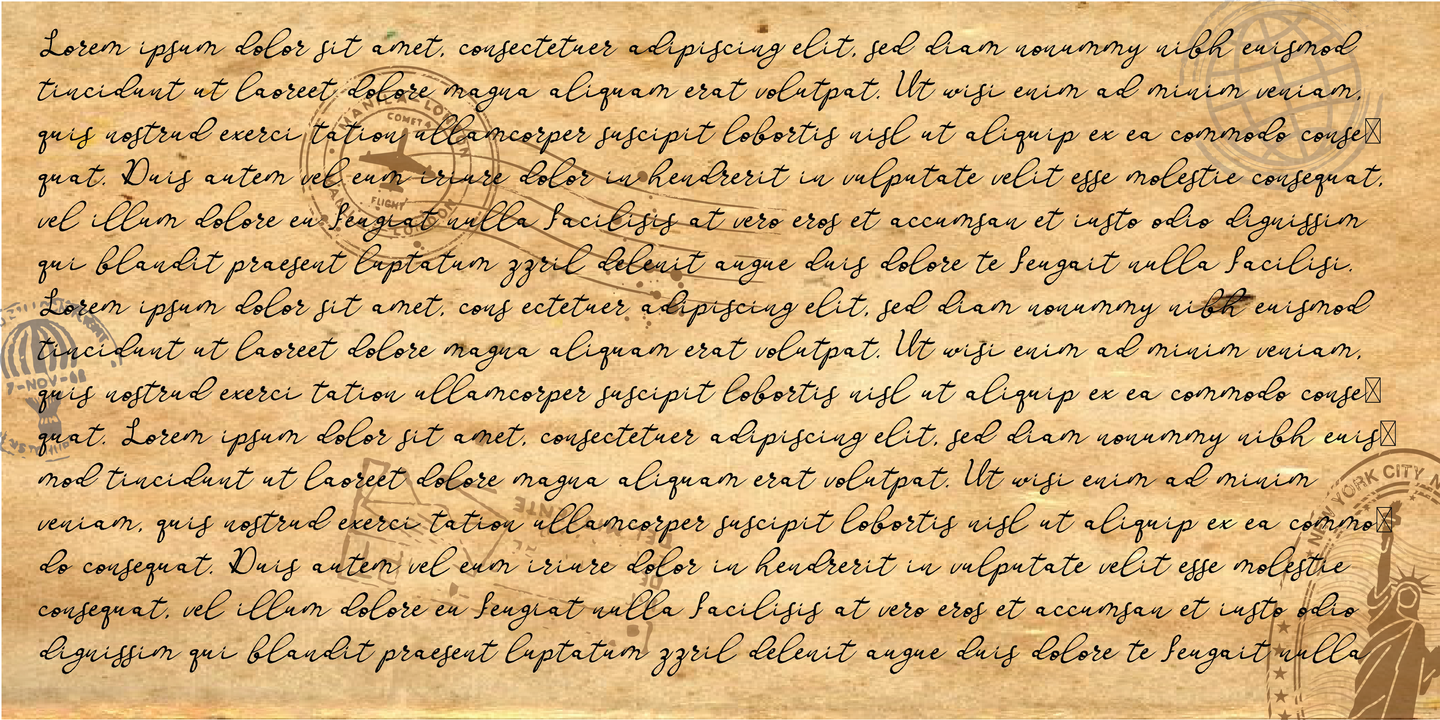 Lorem ipsum dolor sit amet, consectetuer adipiscing elit, sed diam nonummy nibh euismod
tincidunt ut laoreet dolore magna aliquam erat volutpat. Ut wisi enim ad minim veniam,
quis nostrud exerci tation ullamcorper suscipit lobortis nisl ut aliquip ex ea commodo conse
quat. Duis autem vel eum iriure dolor in hendrerit in vulputate velit esse molestie consequat,
vel illum dolore eu feugiat nulla facilisis at vero eros et accumsan et iusto odio dignissim
qui blandit praesent luptatum zzril delenit augue duis dolore te feugait nulla facilisi.
Lorem ipsum dolor sit amet, cons ectetuer adipiscing elit, sed diam nonummy nibh euismod
tincidunt ut laoreet dolore magna aliquam erat volutpat. Ut wisi enim ad minim veniam,
quis nostrud exerci tation ullamcorper suscipit lobortis nisl ut aliquip ex ea commodo conse
quat. Lorem ipsum dolor sit amet, consectetuer adipiscing elit, sed diam nonummy nibh euis
mod tincidunt ut laoreet dolore magna aliquam erat volutpat. Ut wisi enim ad minim
veniam, quis nostrud exerci tation ullamcorper suscipit lobortis nisl ut aliquip ex ea commo
do consequat. Duis autem vel eum iriure dolor in hendrerit in vulputate velit esse molestie
consequat, vel illum dolore eu feugiat nulla facilisis at vero eros et accumsan et iusto odio
dignissim qui blandit praesent luptatum zzril delenit augue duis dolore te feugait nulla
MANILA LONDON
COMET 4
FLIGHT
LONDON
7-NOV-
NEW YORK CITY